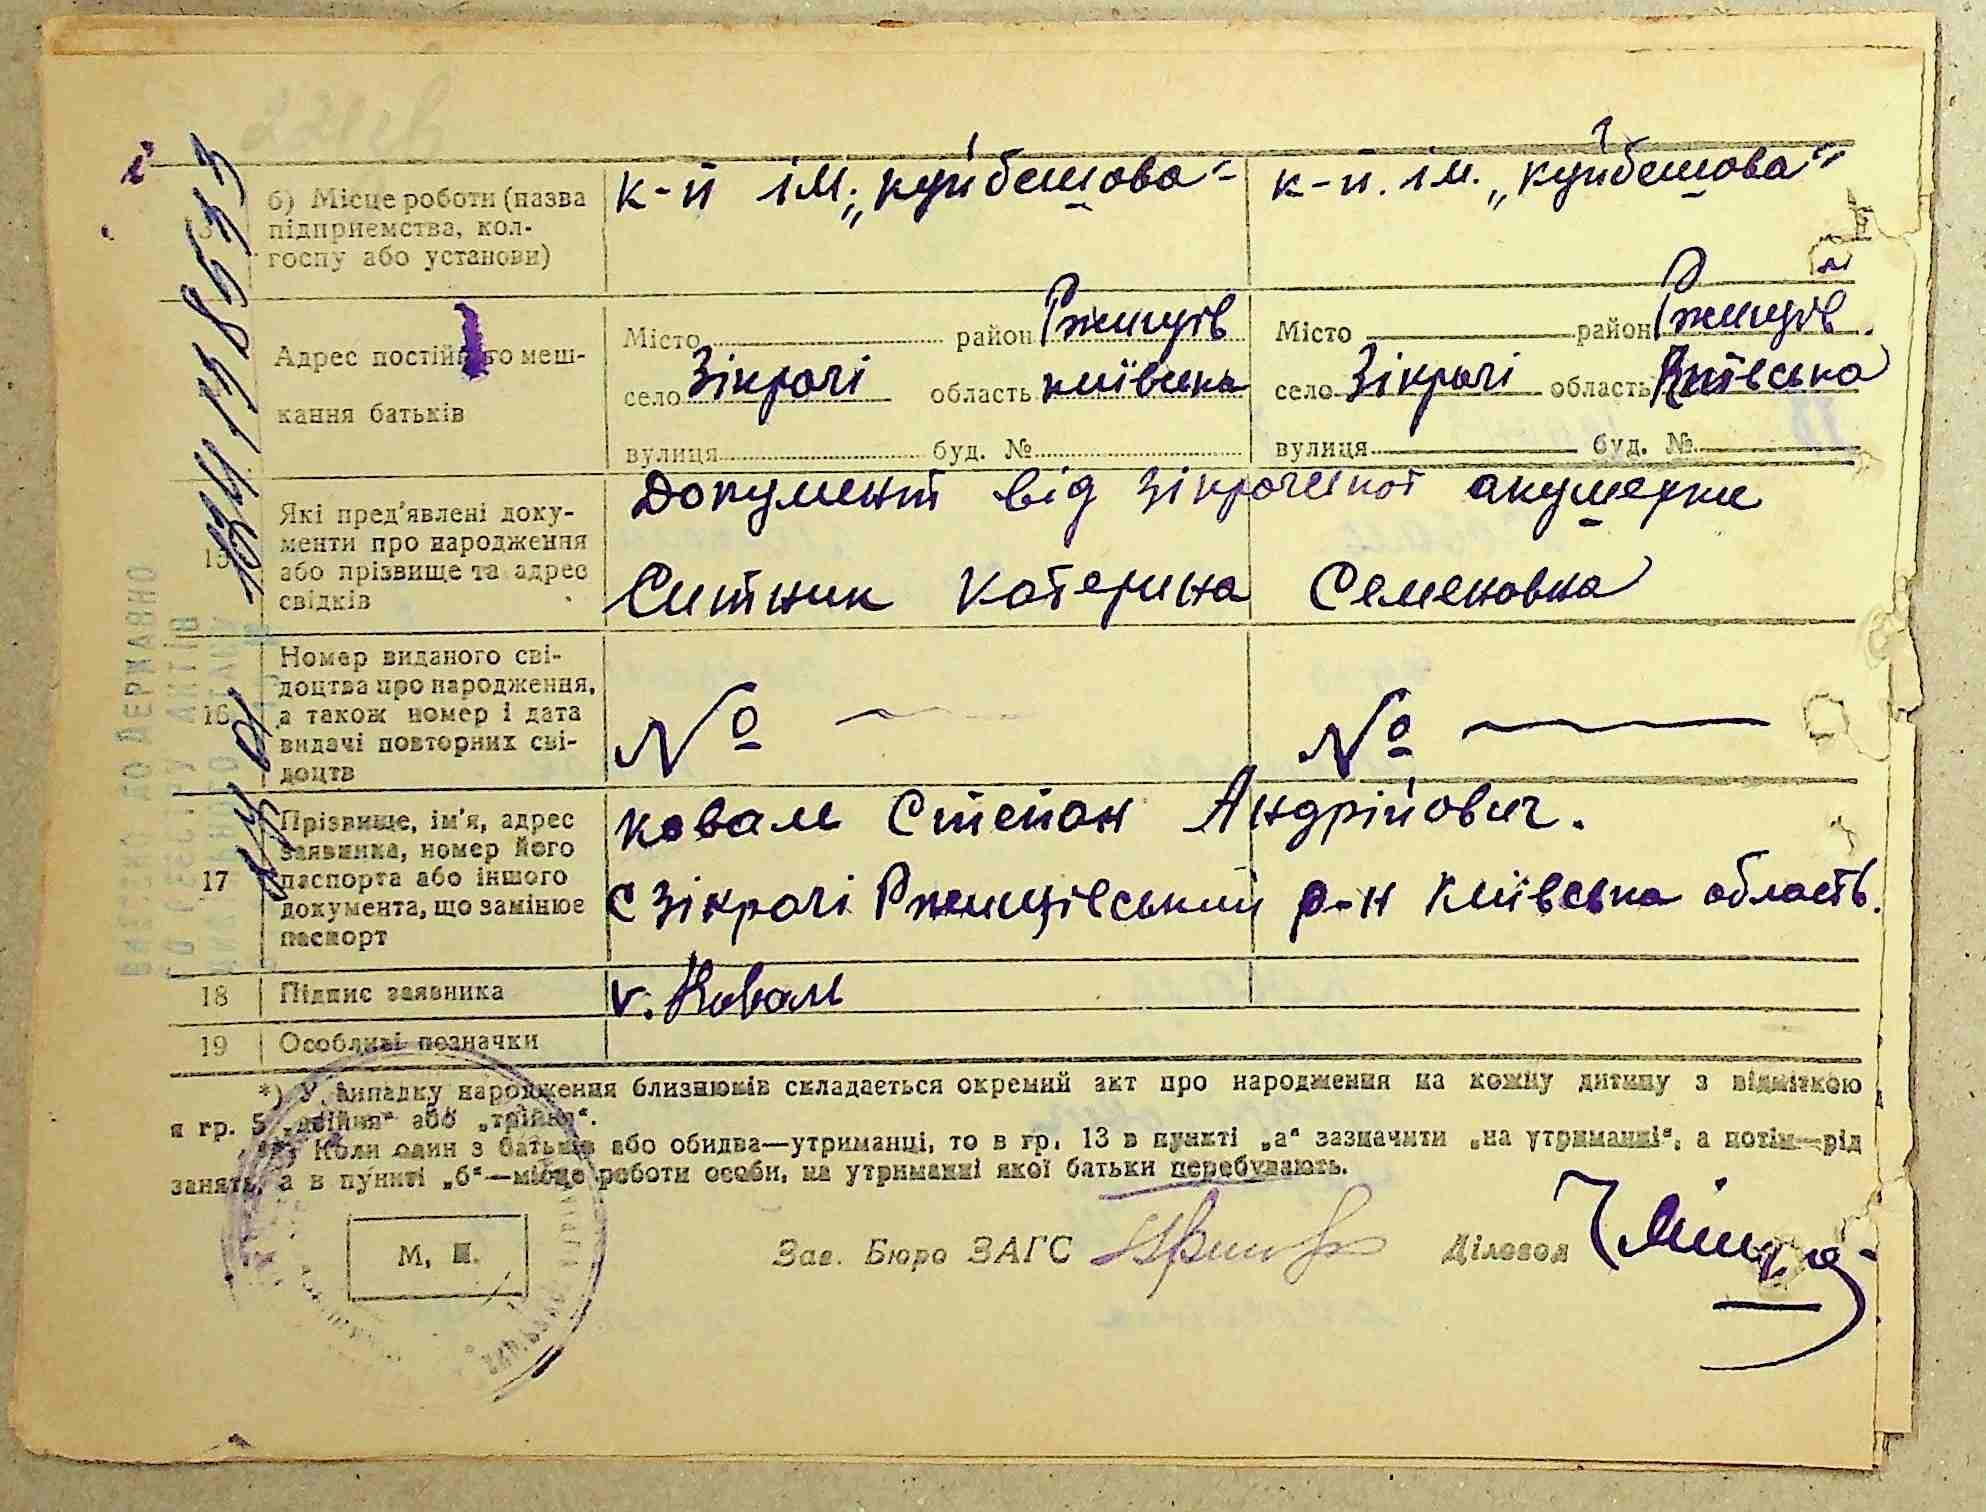 б) Місце роботи (назва підприємства, колгоспу або установи)
к-п ім. „куйбешова“
к-п. ім. „куйбешова“
Адрес постійного мешкання батьків
Місто район Ржищів
село Зікрачі область київська
вулиця буд. №
Місто район Ржищів
село Зікрачі область Київська
вулиця буд. №
15
Які пред’явлені документи про народження або прізвище та адрес свідків
Документ від зікрачекої акушерки
Ситник Катерина Семеновна
16
Номер виданого свідоцтва про народження, а також номер і дата видачі повторних свідоцтв
№ —
№ —
17
Прізвище, ім’я, адрес заявника, номер його паспорта або іншого документа, що замінює паспорт
коваль Степан Андрійович.
с Зікрачі Ржищівський р-н Київська область.
18
Підпис заявника
v. Коваль
19
Особливі позначки
*) У випадку народження близнюків складається окремий акт про народження на кожну дитину з відміткою
в гр. 5 „двійня“ або „трійня“.
**) Коли один з батьків або обидва—утриманці, то в гр. 13 в пункті „а“ зазначити „на утриманні“, а потім—рід
занять, а в пункті „б“—місце роботи особи, на утриманні якої батьки перебувають.
М. П.
Зав. Бюро ЗАГС
Діловод